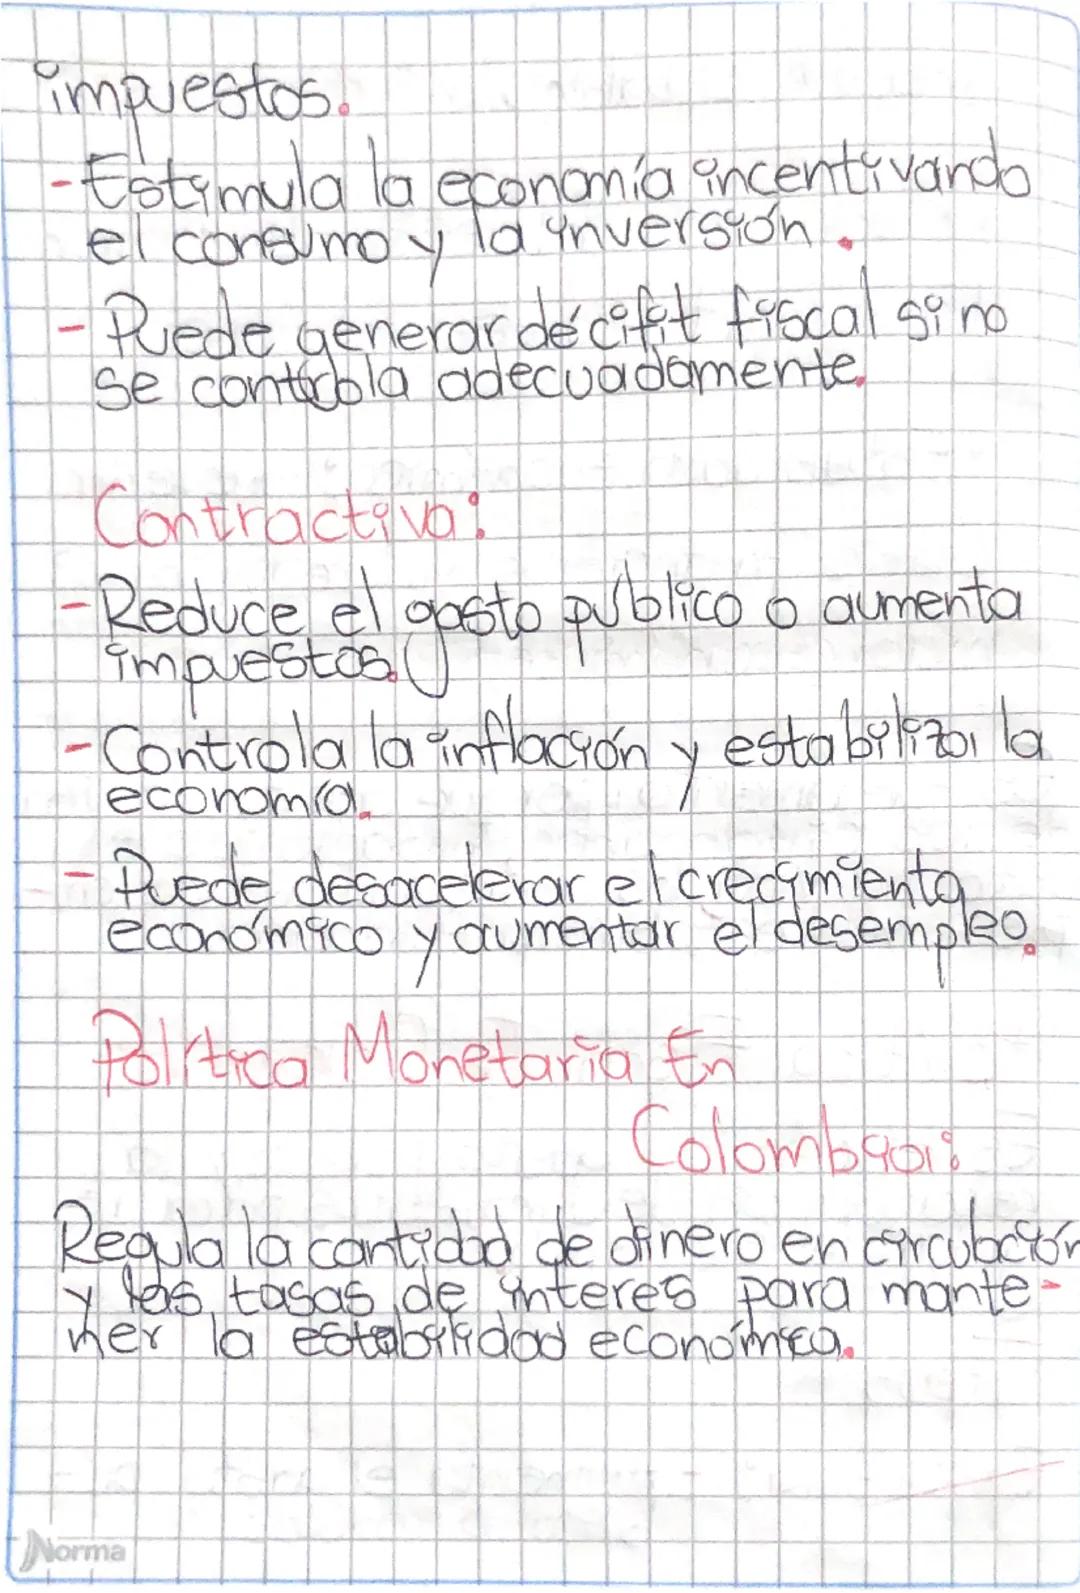 impuestos.
- Estimula la economía incentivando
el consumo y la inversión.
- Puede generar décifit fiscal si no
se controla adecuadamente.
Contractiva:
- Reduce el gasto público o aumenta
impuestos.
- Controla la inflación y estabiliza la
economía.
- Puede desacelerar el crecimiento
económico y aumentar el desempleo.
Política Monetaria En
Colombia:
Regula la cantidad de dinero en circulación
y las tasas de interes para mante-
ner la estabilidad económica.
Norma